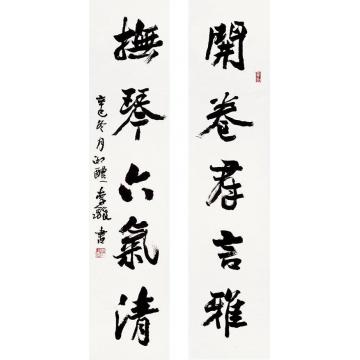 開卷群言雅
撫琴六氣清
辛巳冬月
書